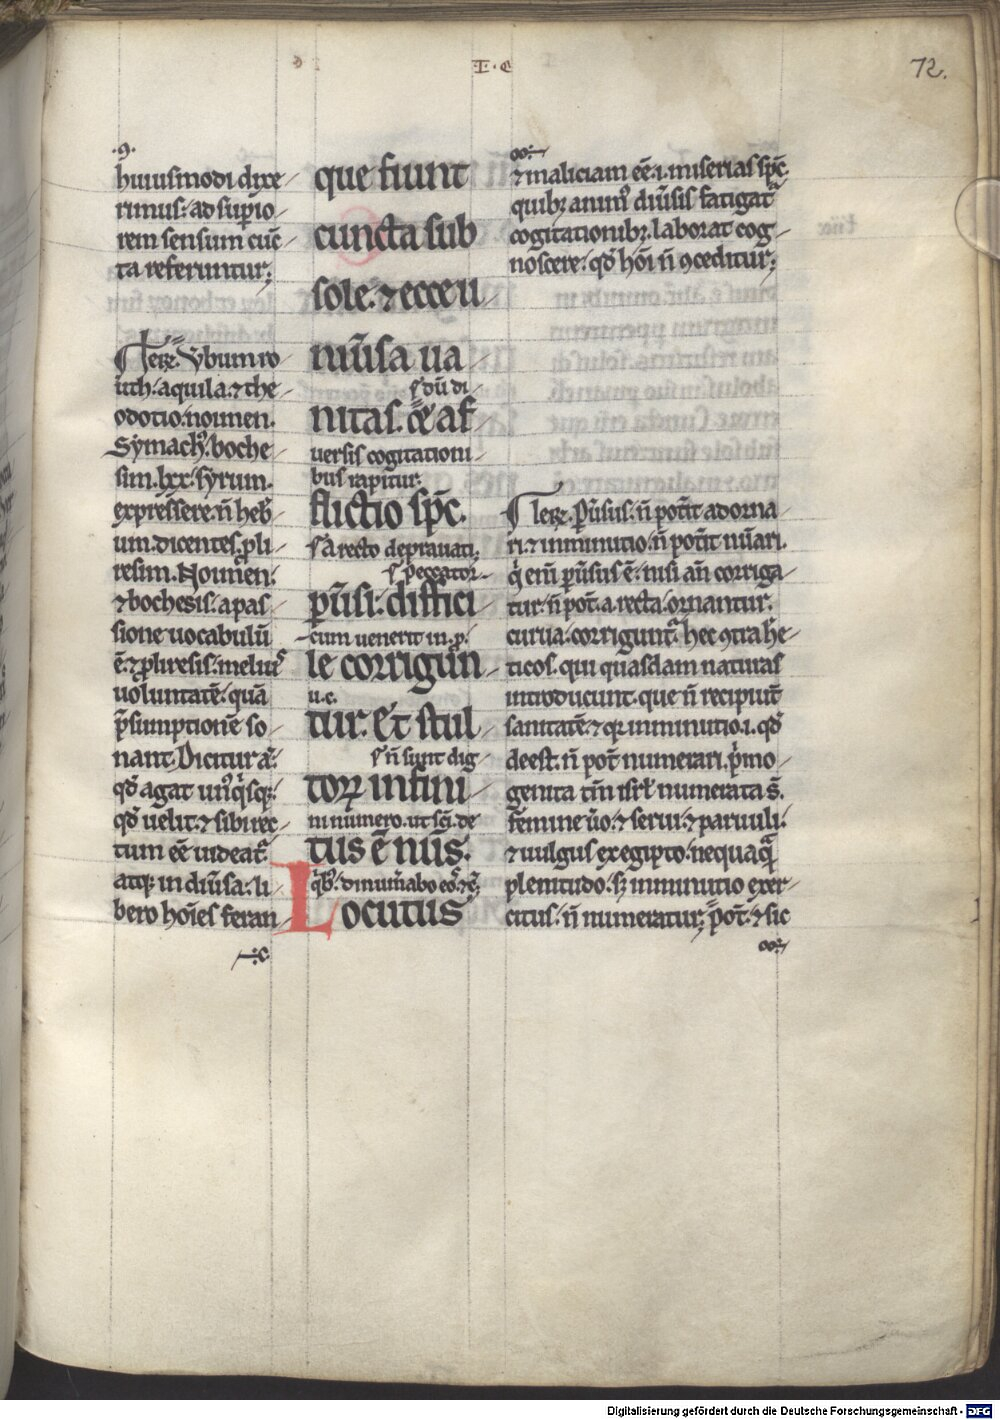 .I. C
72.
.9.
huiusmodi dixe
rimus: ad sup̅io
rem sensum cu̅c
ta referuntur;
Jeꝛoꝰ. Ʋbum ro
uth. aquila. ⁊ the
odotio. nomen.
Symachꝰ. boche
sim. lxx. syrum.
expressere. n̅ heb̅
um. dicentes. pli
resim. Noum̅en.
⁊ bochesis. a pas
sione uocabulu̅
e̅. ⁊ plıresis. meliuꝰ
uoluntate̅. qua̅
p̅sumptione̅ so
nant. Dicitur a̅.
qd̅ agat unꝰqͥsqꝫ.
qd̅ uelit. ⁊ sibi rec
tum ee̅ uideat᷑.
atqꝫ in diu̅sa. li
bero ho̅ies feran
que fiunt
cuncta sub
sole. ⁊ ecce u
niu̅sa ua
s̅ du̅ di
nitas. ⁊ af
uersis cogitationi
bus rapit̅ur.
flictio sp̅c.
s̅ a recto deprauati;
s̅ peccator
pu̅si. diffici
cum uenerit in. p.
le corrigun
u. c.
tur. Et stul
s̅ n̅ sunt dig
toꝝ infini
ni numero. ut sc̅i. de
tus e̅ nu̅s.
qͥbꝰ. dinum̅abo eoꝰ. ⁊c̅;
Locutus
⁊ maliciam ee̅. i. miserias sp̅c.
quibꝫ animꝰ diu̅sis fatigat᷑
cogitationibꝫ. laborat cog
noscere. qd̅ ho̅i n̅ ꝯceditur;
Jeꝛoꝰ. Pu̅sus. n̅ potit̅ adorna
ri. ⁊ inminutio. n̅ potit̅ nu̅ari.
qͥ eni̅ pu̅sus e̅. nisi an̅ corriga
tur. n̅ pot̅. a recta. ornantur.
curua. corrigunt᷑. hec ꝯtra he̅
ticos. qui quasdam naturas
introducunt. que n̅ recipiut̅
sanitate̅. ⁊ qꝛ inminutio. i. qd̅
deest. n̅ pot̅ numerari. pͥmo
genita tm̅ isrl̅ numerata s̅.
femine u̅o. ⁊ serui. ⁊ paruuli.
⁊ uulgus ex egipto. nequaqͣ
plenitudo. sꝫ inminutio exer
citus. n̅ numeratur; pot̅. ⁊ sic
÷c
Digitalisierung gefördert durch die Deutsche Forschungsgemeinschaft - DFG